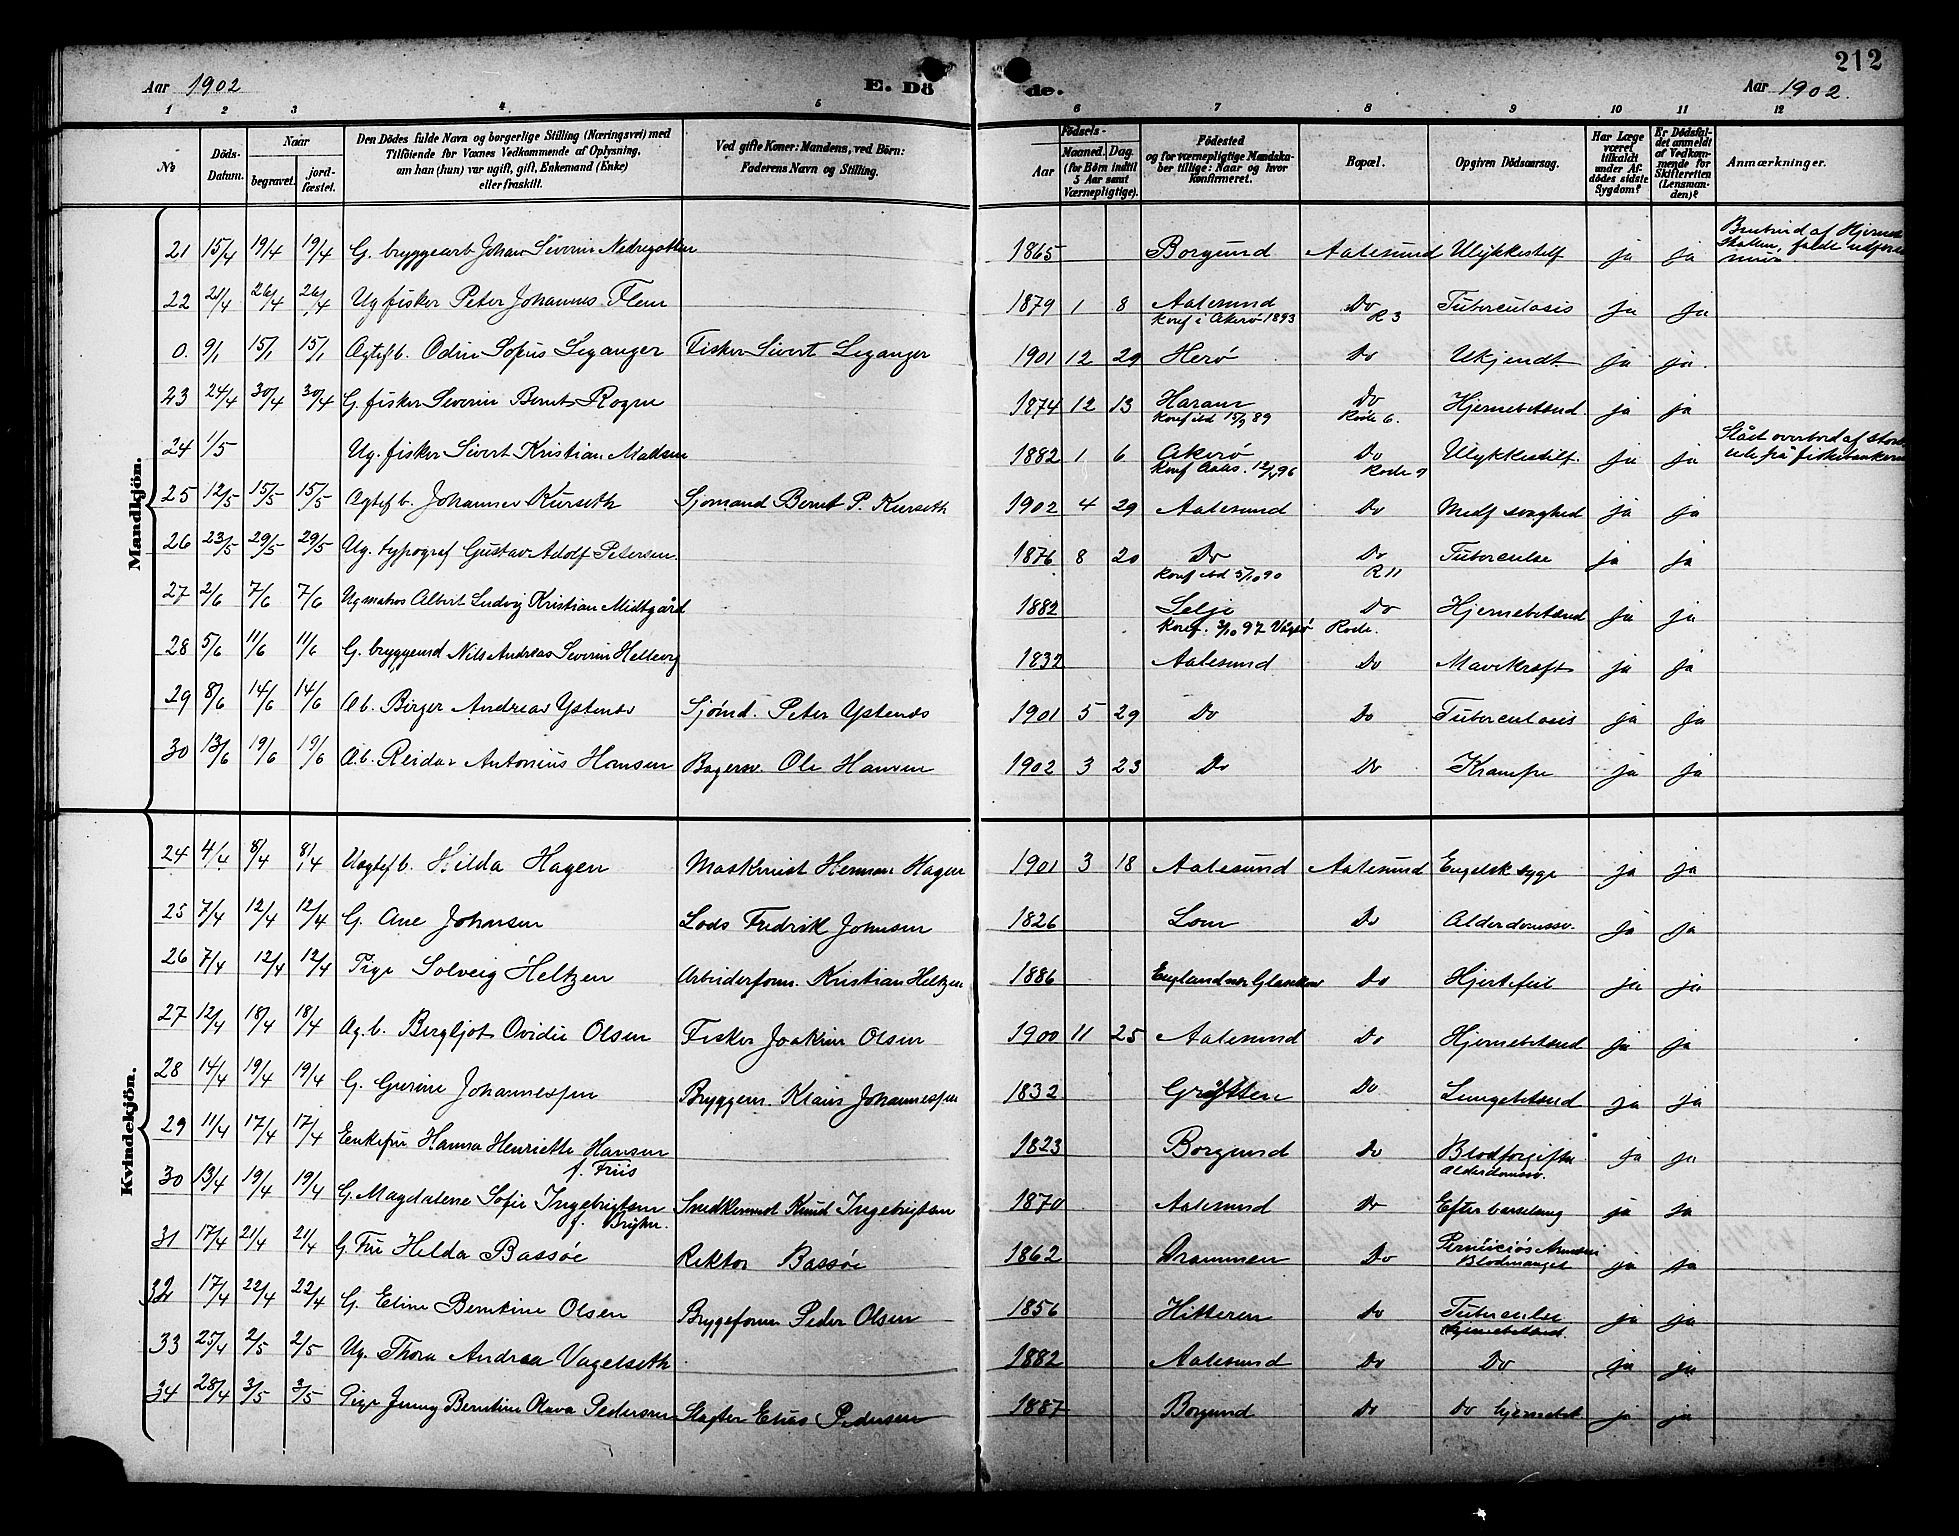 212
Aar 1902 E. Dö de. Aar 1902.
1 2 3 4 5 6 7 8 9 10 11 12
№ Döds-Datum. Naar begravet. jord-fæstet. Den Dödes fulde Navn og borgerlige Stilling (Næringsvei) med Tilföiende for Voxnes Vedkommende af Oplysning, om han (hun) var ugift, gift, Enkemand (Enke) eller fraskilt. Ved gifte Koner: Mandens, ved Börn: Faderens Navn og Stilling. Födsels- Aar Maaned. Dag. (for Börn indtil 5 Aar samt Værnepligtige). Födested og for værnepligtige Mandska-ber tillige: Naar og hvor Konfirmeret. Bopæl. Opgiven Dödsaarsag. Har Læge været tilkaldt under Af-dödes sidste Sygdom? Er Dödsfal-det anmeldt af Vedkom-mende for Skifteretten (Lensman-den)? Anmærkninger.
Mandkjön.
21 15/4 19/4 19/4 G. bryggearb Johan Severin Nedregotten 1865 Borgund Aalesund Ulykkestilf ja ja
22 21/4 26/4 26/4 Ug fisker Peter Johannes Flem 1879 1 8 Aalesund Do Tuberculosis ja ja
Konf i Akerö 1893 R 3
0. 9/1 15/1 15/1 Agtef b. Odin Sofus Leganger Fisker Sivert Leganger 1901 12 29 Herö Do Ukjendt. ja ja.
23 24/4 30/4 30/4 G. fisker Severin Bernt Rogne 1874 12 13 Haram Do Hjernebetænd. ja ja
Konf ibd 15/9 89 Rode 6.
24 1/5 Ug. fisker Sivert Kristian Madsen 1882 1 6 Akerö Do Ulykkestilf. ja ja Slået overbord af
Konf Aales. 96 Rode 7 fiskebankerne
25 12/5 15/5 15/5 Agtef b. Johannes Kurseth Sjömand Bernt P. Kurseth 1902 4 29 Aalesund Do Medf svaghed ja ja
26 23/5 29/5 29/5 Ug. typograf Gustav Adolf Petersen. 1876 8 20 Do Do Tuberculse ja ja
Konf ibd 5/10 90 R 11
27 2/6 7/6 7/6 Ug matros Albert Ludvig Kristian Midtgård 1882 Selje Do Hjernebetænd ja ja
Konf. 3/10 97 Vågsö Rode.
28 5/6 11/6 11/6 G. bryggemd Nils Andreas Severin Hellevig 1832 Aalesund Do Mavekræft ja ja
29 8/6 14/6 14/6 A b. Birger Andreas Ystenes Sjömd. Peter Ystenes 1901 5 29 Do Do Tuberculosis ja ja
30 13/6 19/6 19/6 A. b. Reidar Antonius Hansen Bagersv. Ole Hansen 1902 3 23 Do Do Krampe ja ja
Kvindekjön.
24 4/4 8/4 8/4 Uagtef b. Hilda Hagen Maskinist Herman Hagen 1901 3 18 Aalesund Aalesund Engelsk syge ja ja
25 7/4 12/4 12/4 G. Ane Johnsen Lods Fredrik Johnsen 1826 Lom Do Alderdomssv. ja ja
26 7/4 12/4 12/4 Pige Solveig Heltzen Arbeiderform. Kristian Heltzen 1886 England Do Hjertefeil ja ja
27 12/4 18/4 18/4 Ag. b. Bergljot Ovidie Olsen Fisker Joakim Olsen 1900 11 25 Aalesund Do Hjernebetænd ja ja
28 14/4 19/4 19/4 G. Gurine Johannessen Bryggem. Klaus Johannessen 1832 Grytten Do Lungebetænd ja ja
29 11/4 17/4 17/4 Enkefru Hanna Henriette Hansen 1823 Borgund Do Blodforgiftn ja ja
f. Friis Alderdomssv.
30 13/4 19/4 19/4 G. Magdalene Sofie Ingebrigtsen Snedkersvend Knud Ingebrigtsen 1870 Aalesund Do Efter barselseng ja ja
31 17/4 21/4 21/4 G. Fru Hilda Bassöe Rektor Bassöe 1862 Drammen Do Perniciös Anæmi ja ja
Blodmangel
32 17/4 22/4 22/4 G. Eline Berntine Olsen Bryggeform Peder Olsen 1856 Hitteren Do Tuberculse ja ja
Hjernebetænd.
33 25/4 2/5 2/5 Ug. Thora Andrea Vagelseth 1882 Aalesund Do Do ja ja
34 28/4 3/5 3/5 Pige Jenny Berntine Olava Pedersen Slagter Elias Pedersen 1887 Borgund Do Do hjernebet ja ja